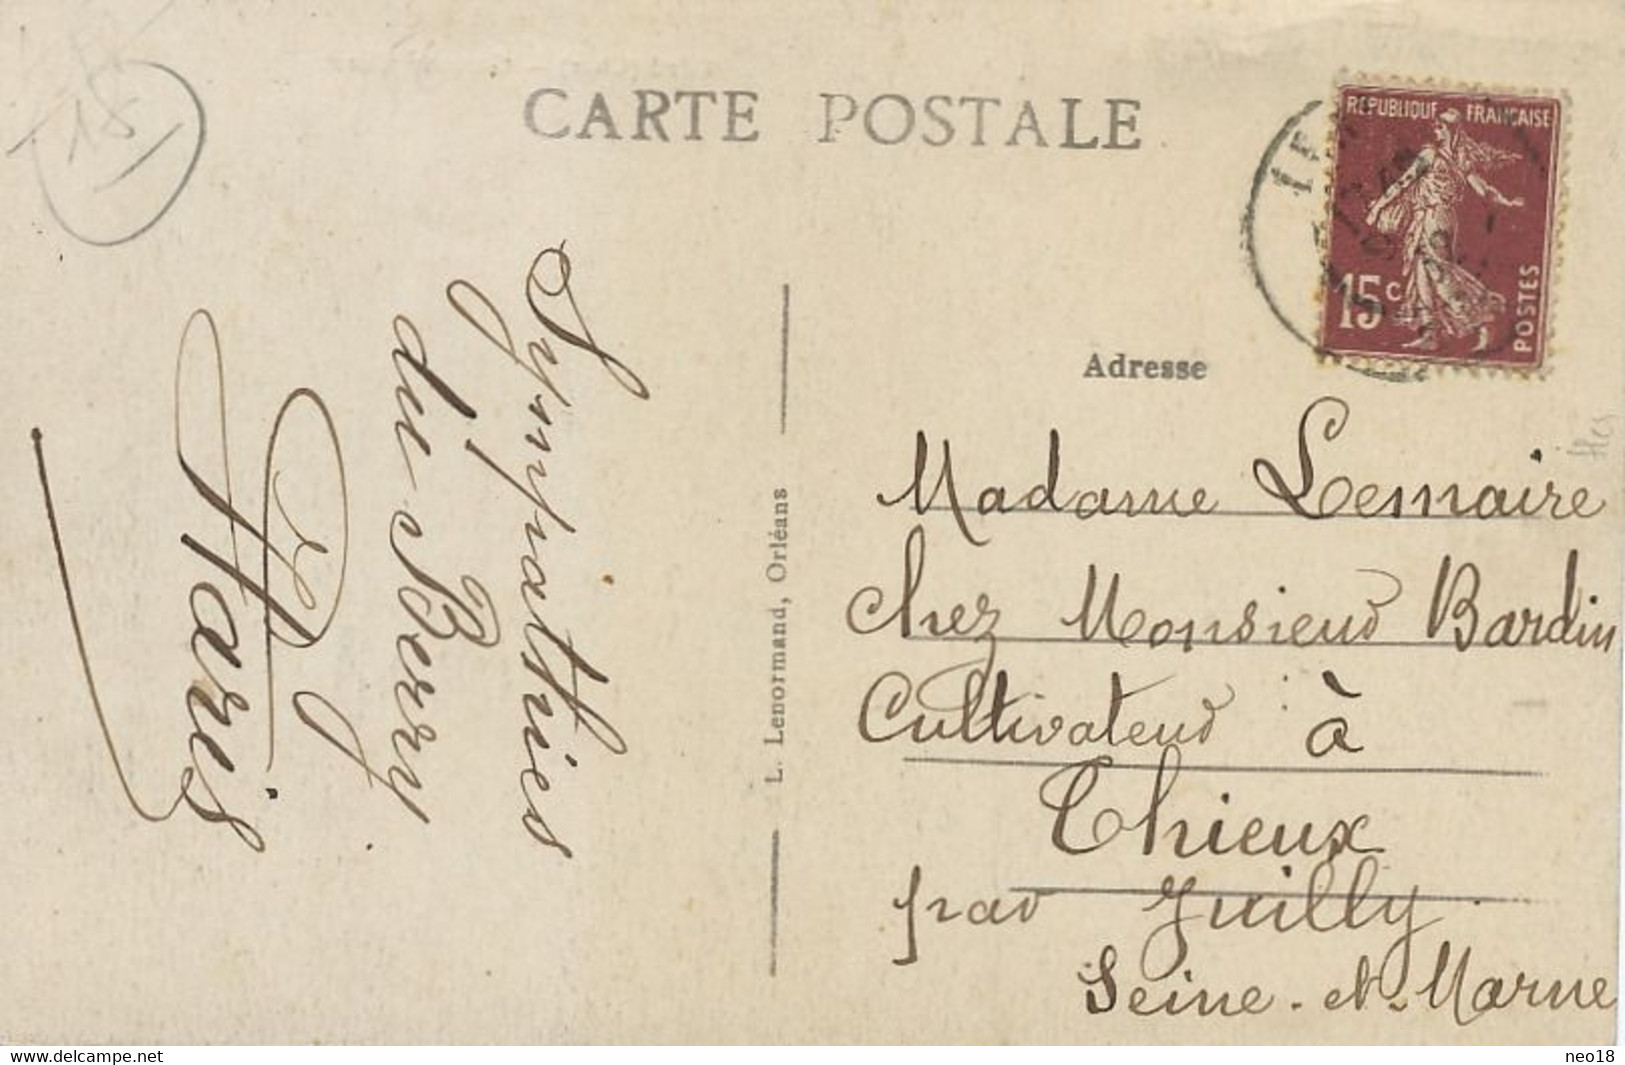 18
CARTE POSTALE
RÉPUBLIQUE FRANÇAISE
15 c
POSTES
Sympathies
du Berry
Haris
L. Lenormand, Orléans
Adresse
Madame Lemaire
chez Monsieur Bardin
Cultivateur à
Thieux
par Juilly
Seine-et-Marne
www.delcampe.net
neo18